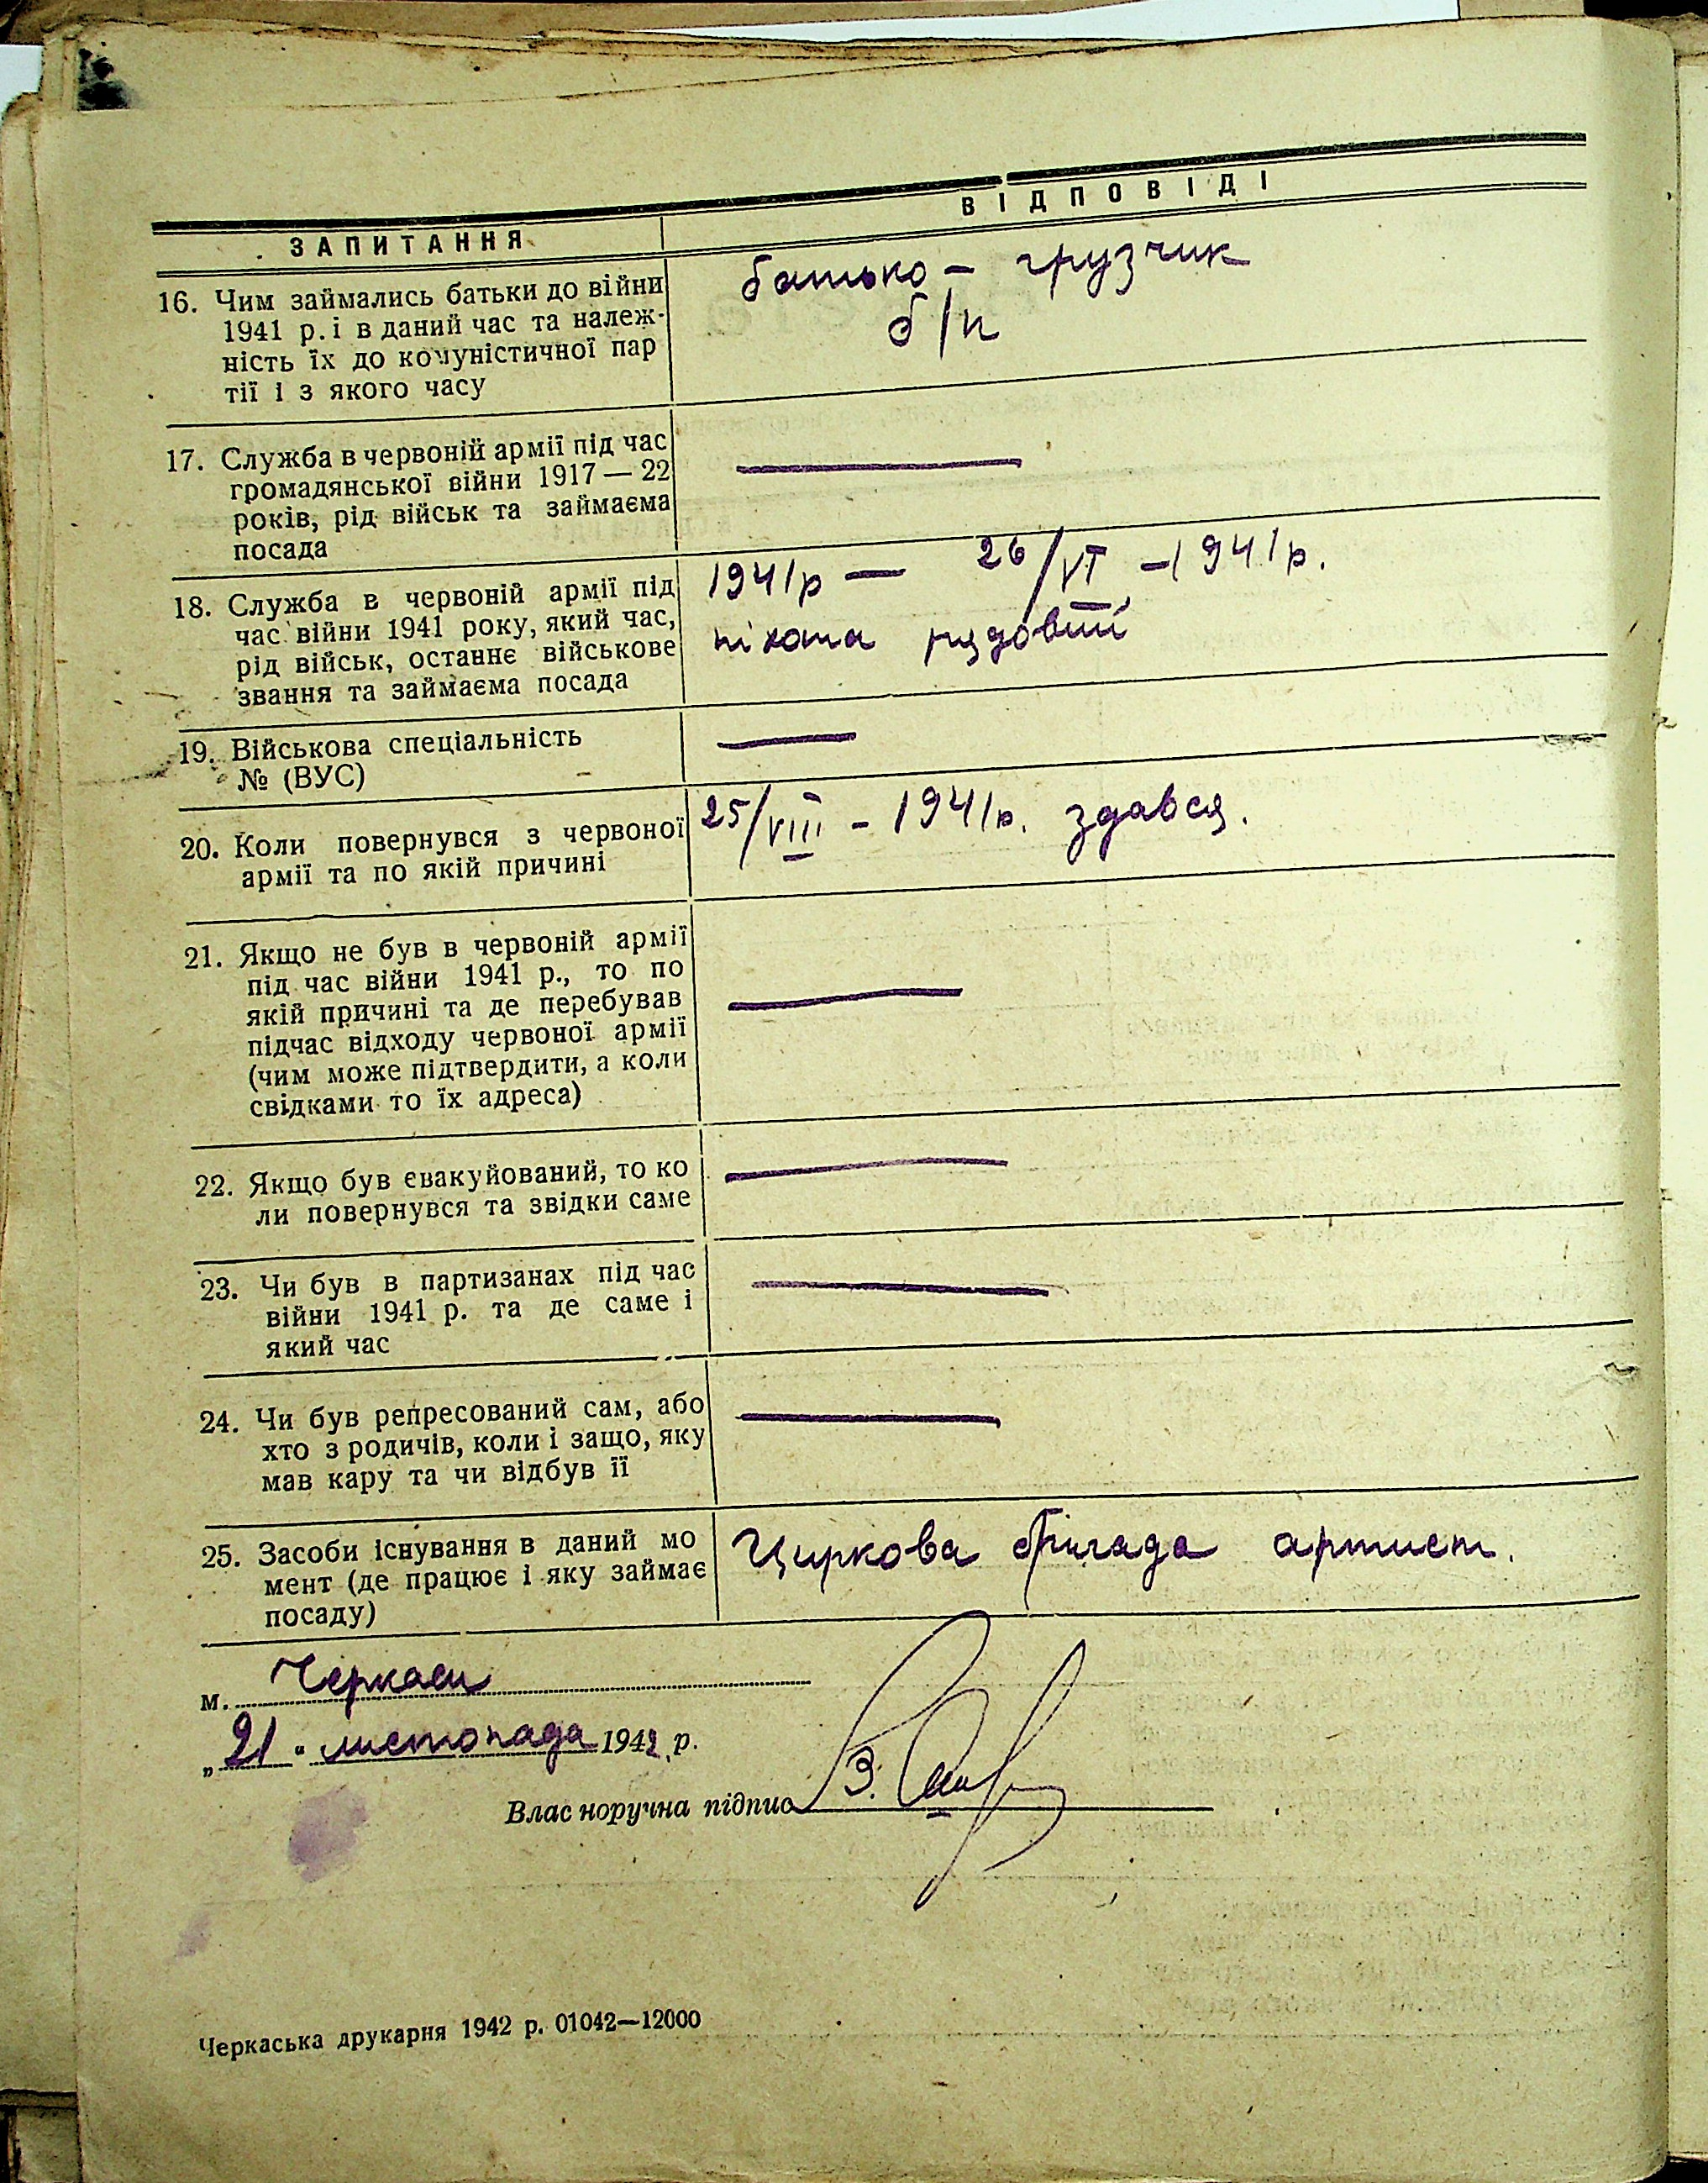 ЗАПИТАННЯ
ВІДПОВІДІ
16. Чим займались батьки до війни
1941 р. і в даний час та належ-
ність їх до комуністичної пар
тії і з якого часу
батько — грузчик
б/п
17. Служба в червоній армії під час
громадянської війни 1917 — 22
років, рід військ та займаєма
посада
18. Служба в червоній армії під
час війни 1941 року, який час,
рід військ, останнє військове
звання та займаєма посада
1941р — 26/VI — 1941р.
піхота рядовий
19. Військова спеціальність
№ (ВУС)
20. Коли повернувся з червоної
армії та по якій причині
25/VIII - 1941р. здався.
21. Якщо не був в червоній армії
під час війни 1941 р., то по
якій причині та де перебував
підчас відходу червоної армії
(чим може підтвердити, а коли
свідками то їх адреса)
22. Якщо був євакуйований, то ко
ли повернувся та звідки саме
23. Чи був в партизанах під час
війни 1941 р. та де саме і
який час
24. Чи був репресований сам, або
хто з родичів, коли і защо, яку
мав кару та чи відбув її
25. Засоби існування в даний мо
мент (де працює і яку займає
посаду)
Циркова бригада артист.
м. Черкаси
„21" листопада 1942 р.
Власноручна підпис З.
Черкаська друкарня 1942 р. 01042—12000